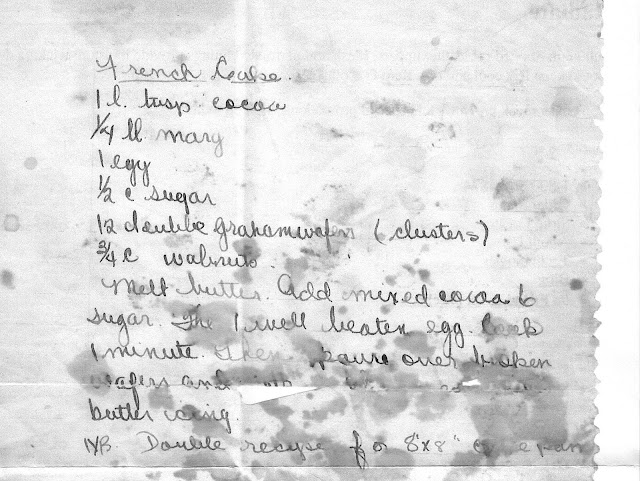 French Cake.
1 l. tbsp cocoa
1/4 lb marg
1 egg
1/2 c sugar
12 double grahamwafers (clusters)
3/4 c walnuts.
Melt butter. Add mixed cocoa &
sugar. The 1 well beaten egg. Cook
1 minute. Then pour over broken
wafers and
butter icing.
NB. Double recipe for 8"x8" pan